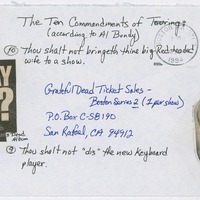 The Ten Commandments of Touring:
(according to Al Bundy)
⑩ Thou shalt not bringeth thine big Redheaded
wife to a show.
Y
?
Grateful Dead Ticket Sales -
Boston Series 2 (1 per show)
P.O. Box C-S8190
San Rafael, CA 94912
Album
1994
⑨ Thou shalt not "dis" the new keyboard
player.